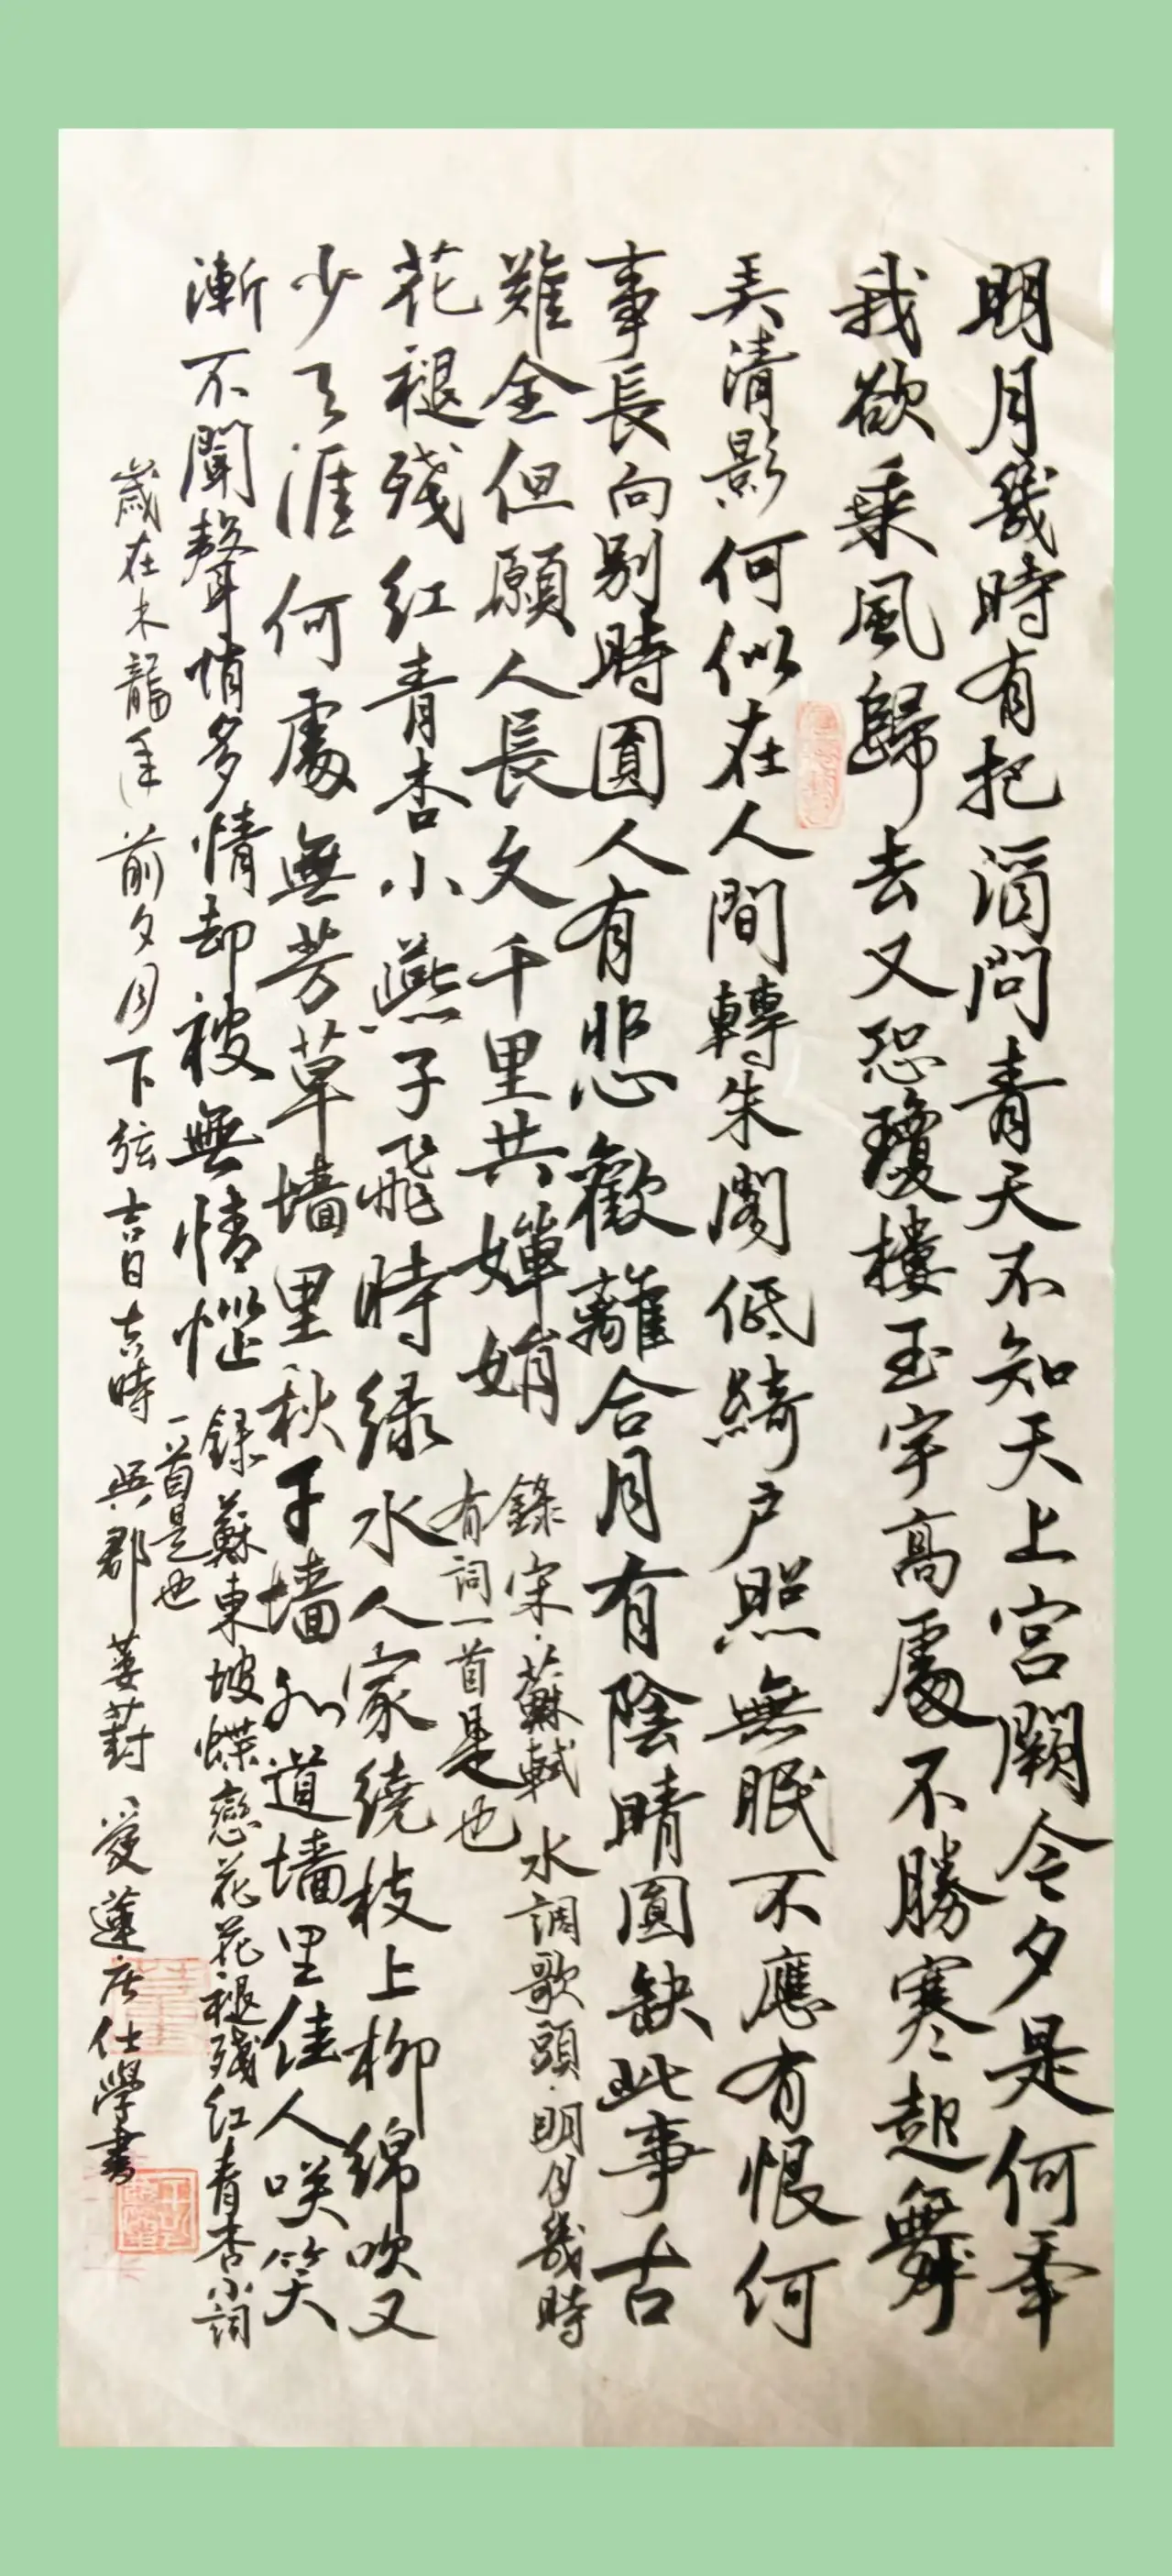 明月幾時有把酒問青天不知天上宮闕今夕是何年
我欲乘風歸去又恐瓊樓玉宇高處不勝寒起舞
弄清影何似在人間轉朱閣低綺户照無眠不應有恨何
事長向别時圓人有悲歡離合月有陰晴圓缺此事古
難全但願人長久千里共嬋娟
錄宋·蘇軾水調歌頭·明月幾時
有詞一首是也
花褪殘红青杏小燕子飛時绿水人家绕枝上柳綿吹又
少天涯何處無芳草墙里秋千墙外道墙里佳人咲笑
漸不聞聲悄多情却被無情惱
録蘇東坡蝶戀花花褪殘红青杏小詞
一首是也
歲在木龍年前夕月下弦吉日吉時吳郡葑愛蓮居仕學書